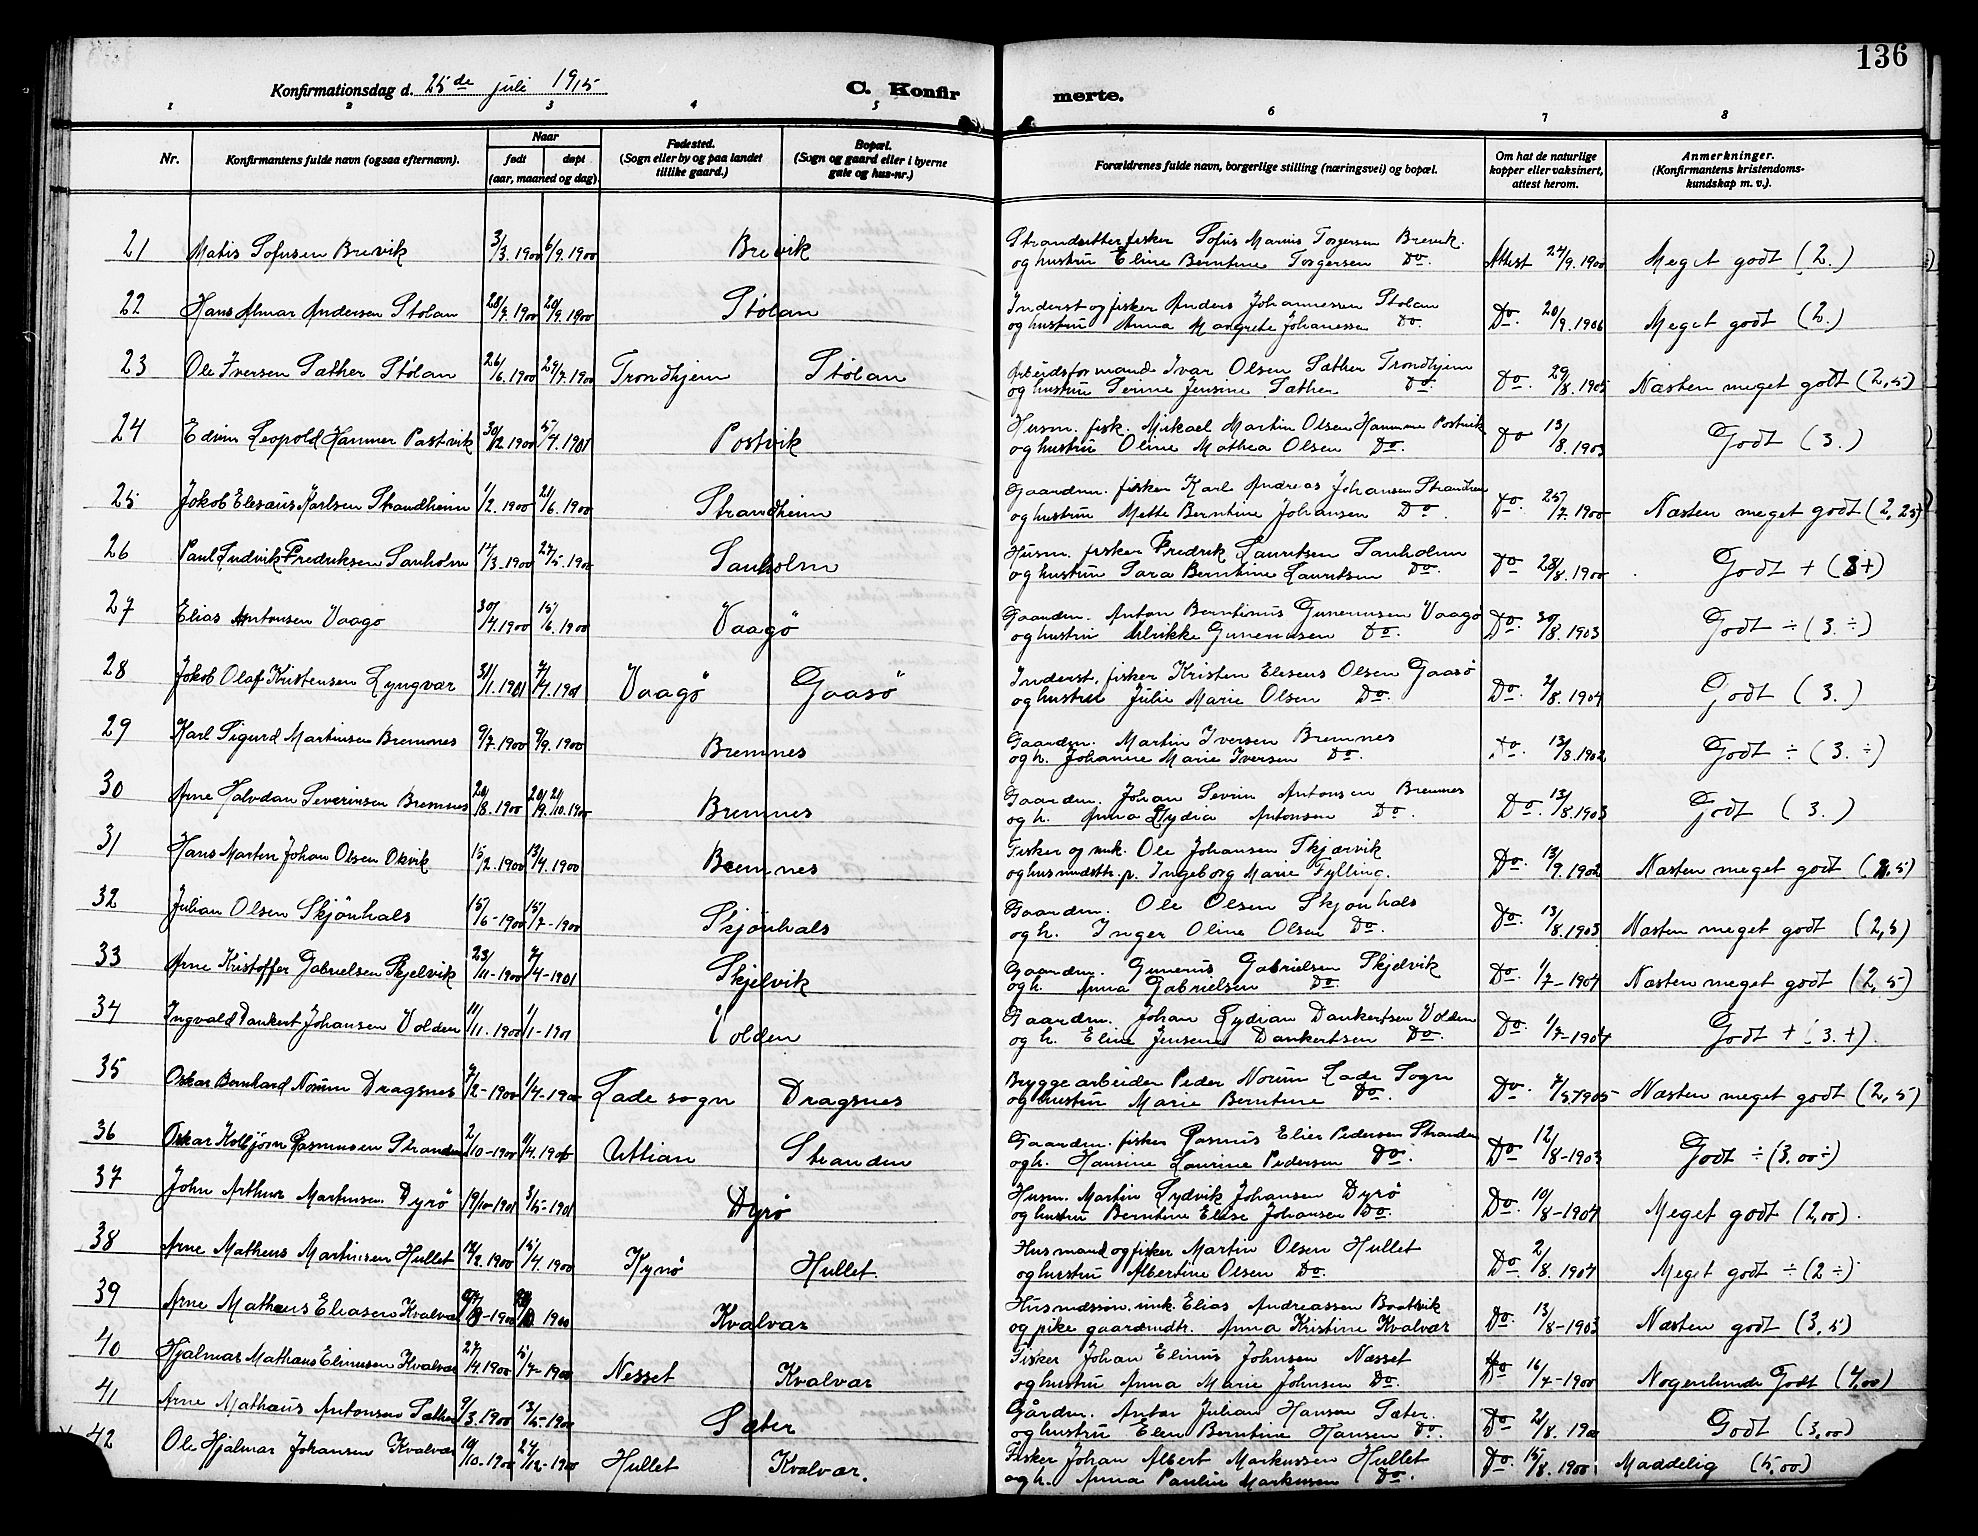 136
Konfirmationsdag d. 25de juli 1915
C. Konfirmerte.
1 2 3 4 5 6 7 8
Nr.
Konfirmantens fulde navn (ogsaa efternavn).
Naar
født døpt
(aar, maaned og dag).
Fødested.
(Sogn eller by og paa landet
tillike gaard.)
Bopæl.
(Sogn og gaard eller i byerne
gate og hus-nr.)
Forældrenes fulde navn, borgerlige stilling (næringsvei) og bopæl.
Om hat de naturlige
kopper eller vaksinert,
attest herom.
Anmerkninger.
(Konfirmantens kristendoms-
kundskap m. v.).
21 Matis Sofusen Brevik 3/3. 1900 6/9. 1900 Brevik
Strandsitter fisker Sofus Marius Torgersen Brevik.
og hustru Eline Berntine Torgersen Do. Attest 24/9. 1900 Meget godt (2.)
22 Hans Almar Andersen Stølan 28/7. 1900 20/9. 1900 Stølan
Inderst og fisker Anders Johannessen Stølan
og hustru Anna Margrete Johanessen Do. Do. 20/9. 1906 Meget godt (2.)
23 Ole Iversen Sæther Stølan 26/6. 1900 29/7. 1900 Trondhjem Stølan
Arbeidsformand Ivar Olsen Sæther Trondhjem
og hustru Serine Jensine Sæther Do. Do. 29/8. 1905 Næsten meget godt (2,5)
24 Edvin Leopold Hammer Postvik 30/12. 1900 5/4. 1901 Postvik
Husm. fisk. Mikael Martin Olsen Hammer Postvik
og hustru Oline Mathea Olsen Do. Do 13/8. 1903 Godt (3.)
25 Jokob Elesæus Karlsen Strandheim 1/2. 1900 21/6. 1900 Strandheim
Gaardm. fisker Karl Andreas Johansen Strandheim
og hustru Mette Berntine Johansen Do. Do. 25/7. 1900 Næsten meget godt (2,25)
26 Paul Ludvik Fredriksen Sauholm 14/3. 1900 24/5. 1900 Sauholm
Husm. fisker Fredrik Lauritsen Sauholm
og hustru Sara Berntine Lauritsen Do. Do 28/8. 1900 Godt + (3+)
27 Elias Antonsen Vaagø 30/4. 1900 15/6. 1900 Vaagö
Gaardm. Anton Berntinus Guneriusen Vaagø
og hustru Ulrikke Guneriusen Do. Do. 30/8. 1903 Godt ÷ (3. ÷)
28 Jokob Olaf Kristensen Lyngvær 31/1. 1901 7/4. 1901 Vaagö Gaasö
Inderst, fisker Kristen Eleseus Olsen Gaasö
og hustru Julie Marie Olsen Do. Do. 2/8. 1904 Godt (3.)
29 Karl Sigurd Martinsen Bremnes 9/7. 1900 9/9. 1900 Bremnes
Gaardm. Martin Iversen Bremnes
og h. Johanne Marie Iversen Do. Do. 13/8. 1902 Godt ÷ (3. ÷)
30 Arne Halvdan Severinsen Bremnes 20/8. 1900 21/10. 1900 Bremnes
Gaardm. Johan Sevrin Antonsen Bremnes
og h. Anna Lydia Antonsen Do. Do. 13/8. 1903 Godt (3.)
31 Hans Martin Johan Olsen Okvik 15/2. 1900 13/4. 1900 Bremnes
Fisker og unk. Ole Johansen Skjærvik
og husmandsttr. p. Ingeborg Marie Fylling. Do. 13/9. 1902 Næsten meget godt (2,5)
32 Julian Olsen Skjönhals 15/6-1900 15/7-1900 Skjönhals
Gaardm. Ole Olsen Skjönhals
og h. Inger Oline Olsen Do. Do. 13/8. 1903 Næsten meget godt (2,5)
33 Arne Kristoffer Gabrielsen Skjelvik 23/11-1900 7/4-1901 Skjelvik
Gaardm. Gunerius Gabrielsen Skjelvik
og h. Anna Gabrielsen Do Do. 1/7-1904 Næsten meget godt (2,5)
34 Ingvald Dankert Johansen Volden 11/11. 1900 1/1-1901 Volden
Gaardm. Johan Lydian Dankertsen Volden
og h. Eline Jensena Dankertsen Do. Do. 1/7-1904 Godt + (3.+)
35 Oskar Bernhard Norum Dragsnes 7/2-1900 1/4-1900 Lade sogn Dragsnes
Bryggearbeider Peder Norum Lade Sogn
og hustru Marie Berntine Do. Do. 7/5. 1905 Næsten meget godt (2,5)
36 Oskar Kolbjørn Rasmusen Stranden 2/10-1900 Uttian Stranden
Gaardm. fisker Rasmus Elier Pedersen Stranden
og h. Hansine Laurine Pedersen Do. Do 12/8-1903 Godt ÷ (3.00÷)
37 John Arthur Martinsen Dyrö 19/10-1901 3/5-1901 Dyrö
Husm. Martin Lydvik Johansen Dyrö
og hustru Berntine Elise Johansen Do. Do. 10/8-1904 Meget godt (2,00).
38 Arne Matheus Martinsen Hullet 12/2. 1900 15/4. 1900 Kynö Hullet.
Husmand og fisker Martin Olsen Hullet
og hustru Albertine Olsen Do. Do. 2/8. 1904 Meget godt ÷ (2 ÷)
39 Arne Mathæus Eliasen Kvalvær Kvalvær
Husmdssön. unk. Elias Andreassen Baatsvik
og pike gaardmdtr. Anna Kristine Kvalvær Do. 13/8-1903 Næsten godt (3,5)
40 Hjalmar Mathæus Elinusen Kvalvær 27/4. 1900 5/7-1900 Nesset Kvalvær
Fisker Johan Elinus Johnsen Næsset
og hustru Anna Marie Johnsen Do. Do 16/7-1900 Nogenlunde Godt (4,00)
41 Arne Mathæus Antonsen Sæther 9/3. 1900 13/5-1900 Sæter
Gårdm. Anton Julian Hansen Sæter.
og hustru Elen Berntine Hansen Do. Do 21/8. 1900 Godt (3,00)
42 Ole Hjalmar Johansen Kvalvær 19/10-1900 27/12-1900 Hullet Kvalvær.
Fisker Johan Albert Markussen Hullet
og h. Anna Pauline Markusen Do. Do. 15/8. 1900 Maadelig (5,00)